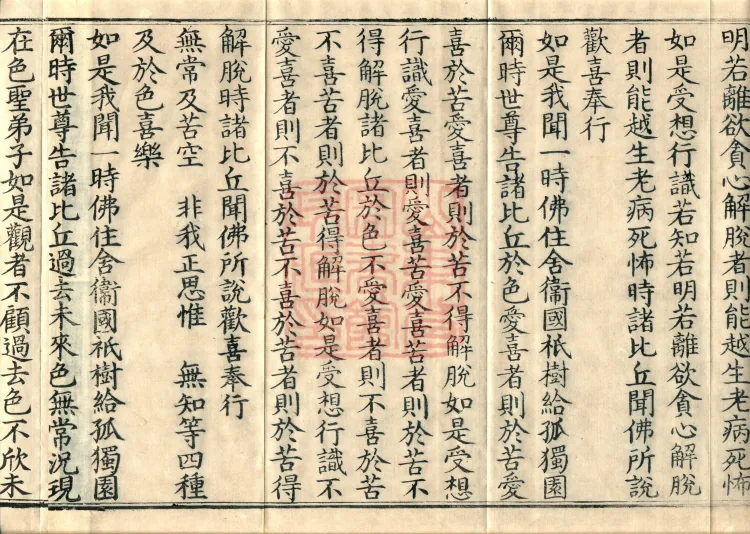 明若離欲貪心解脫者則能越生老病死怖
如是受想行識若知若明若離欲貪心解脫
者則能越生老病死怖時諸比丘聞佛所說
歡喜奉行
如是我聞一時佛住舍衞國祇樹給孤獨園
爾時世尊告諸比丘於色愛喜者則於苦愛
喜於苦愛喜者則於苦不得解脫如是受想
行識愛喜者則愛喜苦愛喜苦者則於苦不
得解脫諸比丘於色不愛喜者則不喜於苦
不喜苦者則於苦得解脫如是受想行識不
愛喜者則不喜於苦不喜於苦者則於苦得
解脫時諸比丘聞佛所說歡喜奉行
無常及苦空　非我正思惟　無知等四種
及於色喜樂
如是我聞一時佛住舍衞國祇樹給孤獨園
爾時世尊告諸比丘過去未來色無常況現
在色聖弟子如是觀者不顧過去色不欣未